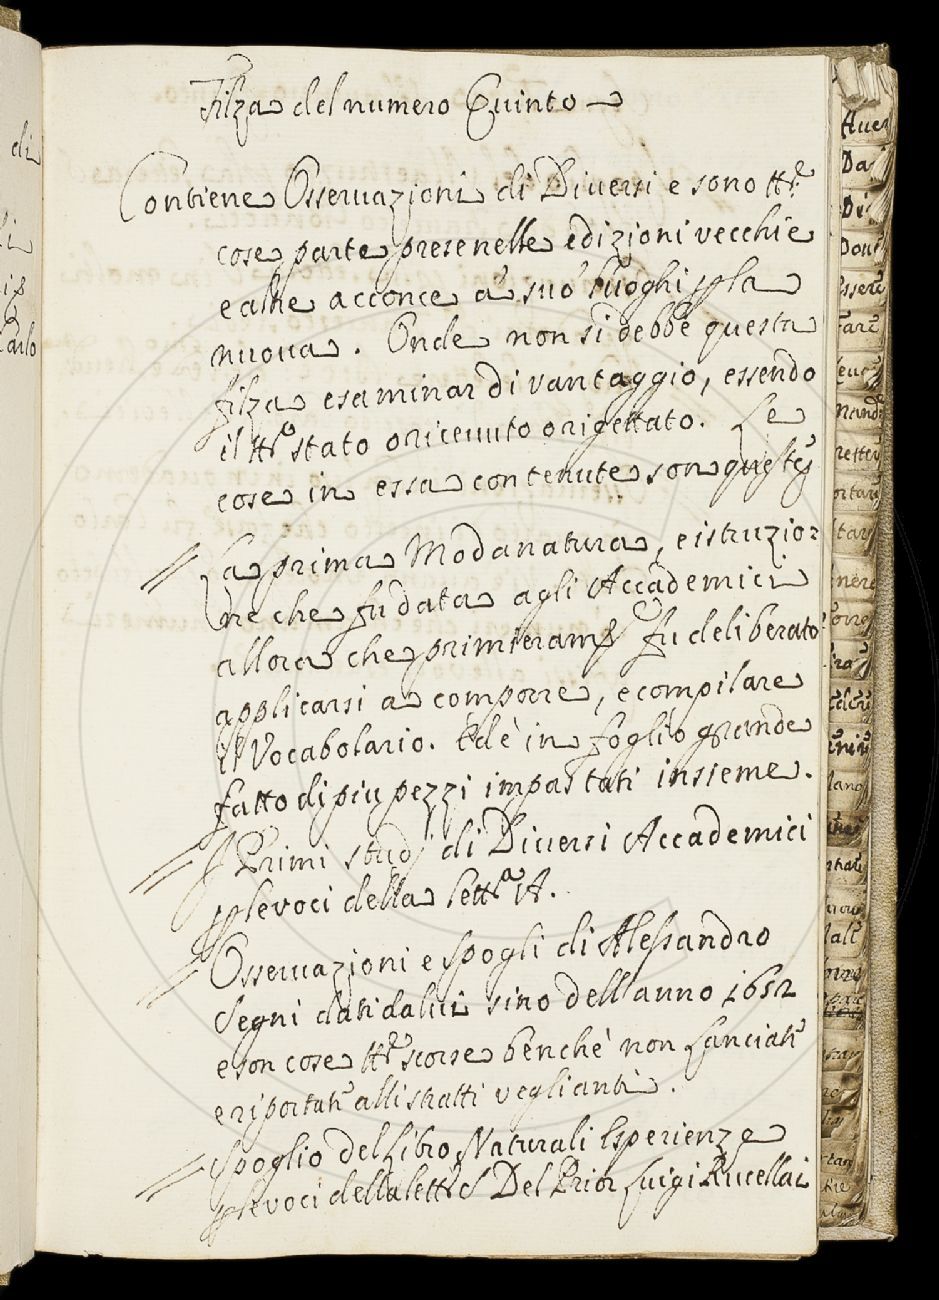 Filza del numero Quinto
Contiene Osservazioni di Diversi e sono ttẽ
cose parte prese nelle edizioni vecchie
e altre acconce a' suo' luoghi p la
nuova. Onde non si debbe questa
filza esaminar di vantaggio, essendo
il ttº stato o ricevuto o rigettato. Le
cose in essa contenute son queste
// La prima Modanatura, e istruzio=
ne che fu data agli Accademici
allora che primieramẽ fu deliberato
applicarsi a comporre, e compilare
il Vocabolario. Ed è in foglio grande
fatto di piu pezzi impastati insieme.
// I Primi studj di Diversi Accademici
p le voci della lettª A.
// Osservazioni e spogli di Alessandro
Segni dati da lui sino dell'anno 1652
e son cose ttẽ scorse benchè non lanciate
e riportate alli stratti veglianti.
// Spoglio del Libro Naturali Esperienze
p le voci della lettª S Del Prior Luigi Rucellai
di
li
Carlo
Aver
Da
Di
Don
Essere
Fare